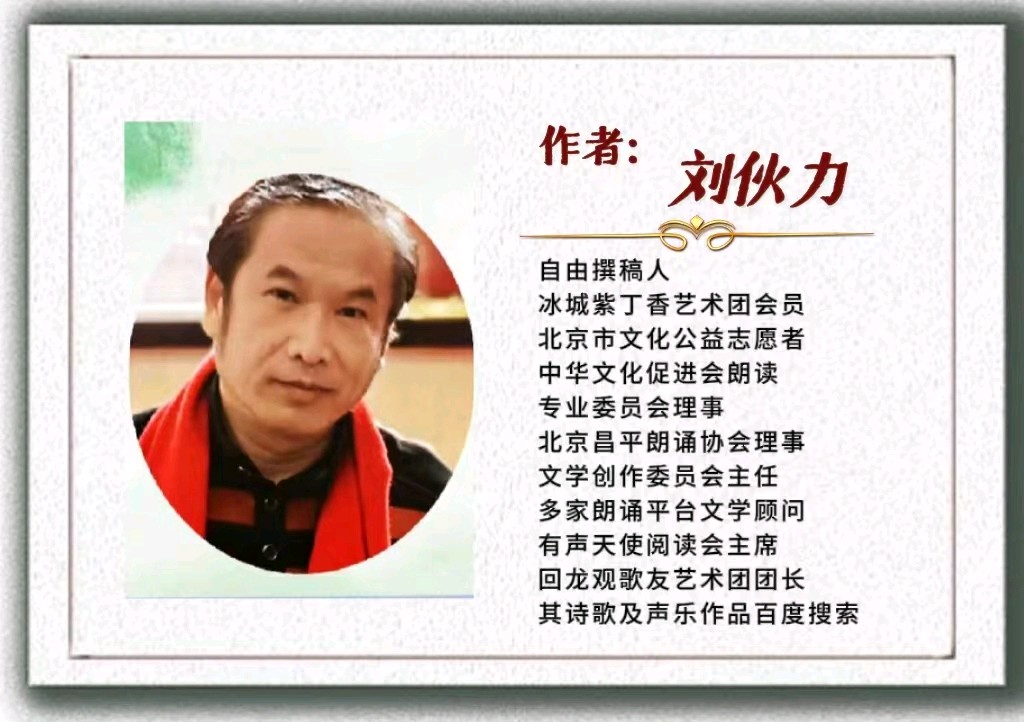 作者：
刘伙力
自由撰稿人
冰城紫丁香艺术团会员
北京市文化公益志愿者
中华文化促进会朗读
专业委员会理事
北京昌平朗诵协会理事
文学创作委员会主任
多家朗诵平台文学顾问
有声天使阅读会主席
回龙观歌友艺术团团长
其诗歌及声乐作品百度搜索